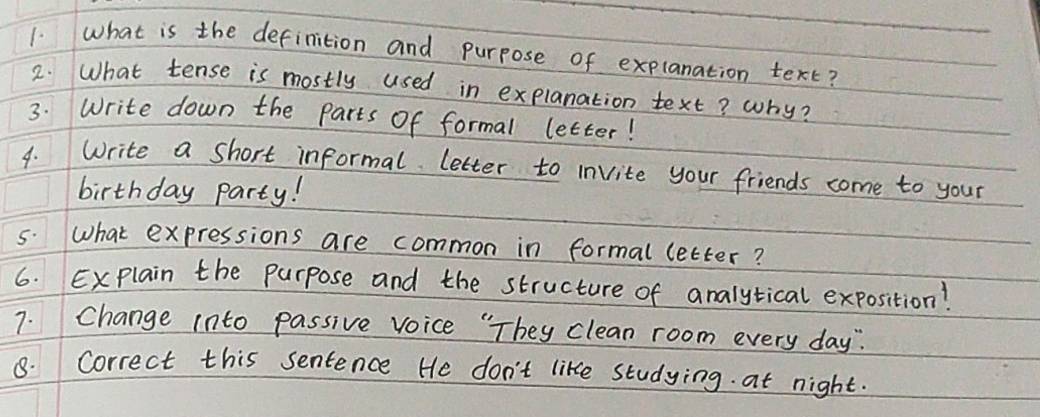 1. What is the definition and purpose of explanation text?
2. What tense is mostly used in explanation text? Why?
3. Write down the parts of formal letter!
4. Write a short informal letter to invite your friends come to your
birthday party!
5. What expressions are common in formal letter?
6. Explain the purpose and the structure of analytical exposition!
7. Change into passive voice "They clean room every day".
8. Correct this sentence He don't like studying. at night.